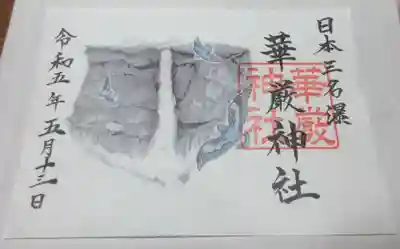 日本三名瀑
華厳神社
華厳神社
令和五年五月十三日